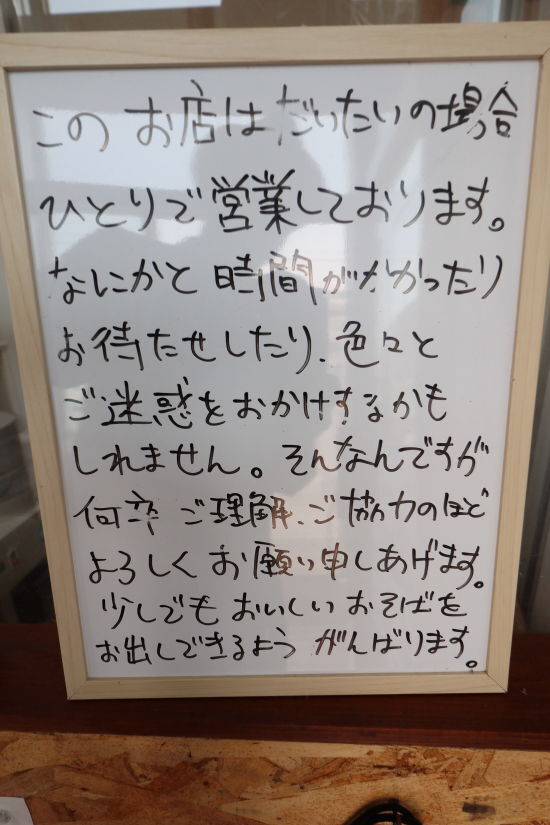 この お店は だいたいの場合
ひとりで営業しております。
なにかと 時間がかかったり
お待たせしたり、色々と
ご迷惑をおかけするかも
しれません。そんなんですが
何卒 ご理解、ご協力のほど
よろしくお願い申しあげます。
少しでも おいしい おそばを
お出しできるよう がんばります。